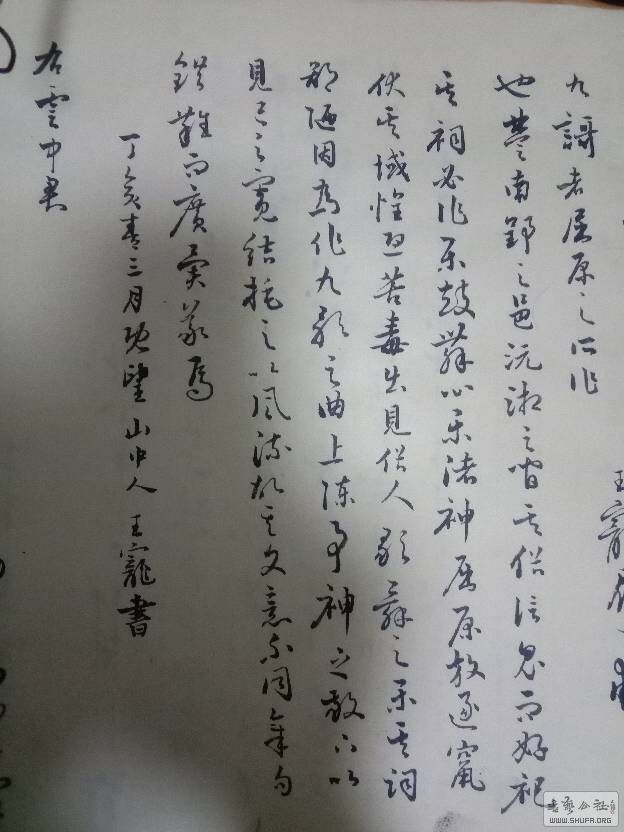 九謌者屈原之所作
也楚南郢之邑沅湘之間其俗信鬼而好祀
其祠必作乐鼓舞以乐诸神屈原放逐竄
伏其域怀忧苦毒出見俗人歌舞之乐其詞
鄙陋因為作九歌之曲上陳事神之敬下以
見己之冤結托之以風諫故其文意不同章句
錯雜而廣異義焉
丁亥春三月既望山中人王寵書
右雲中君
王寵
書艺公社
WWW.SHUFA.ORG